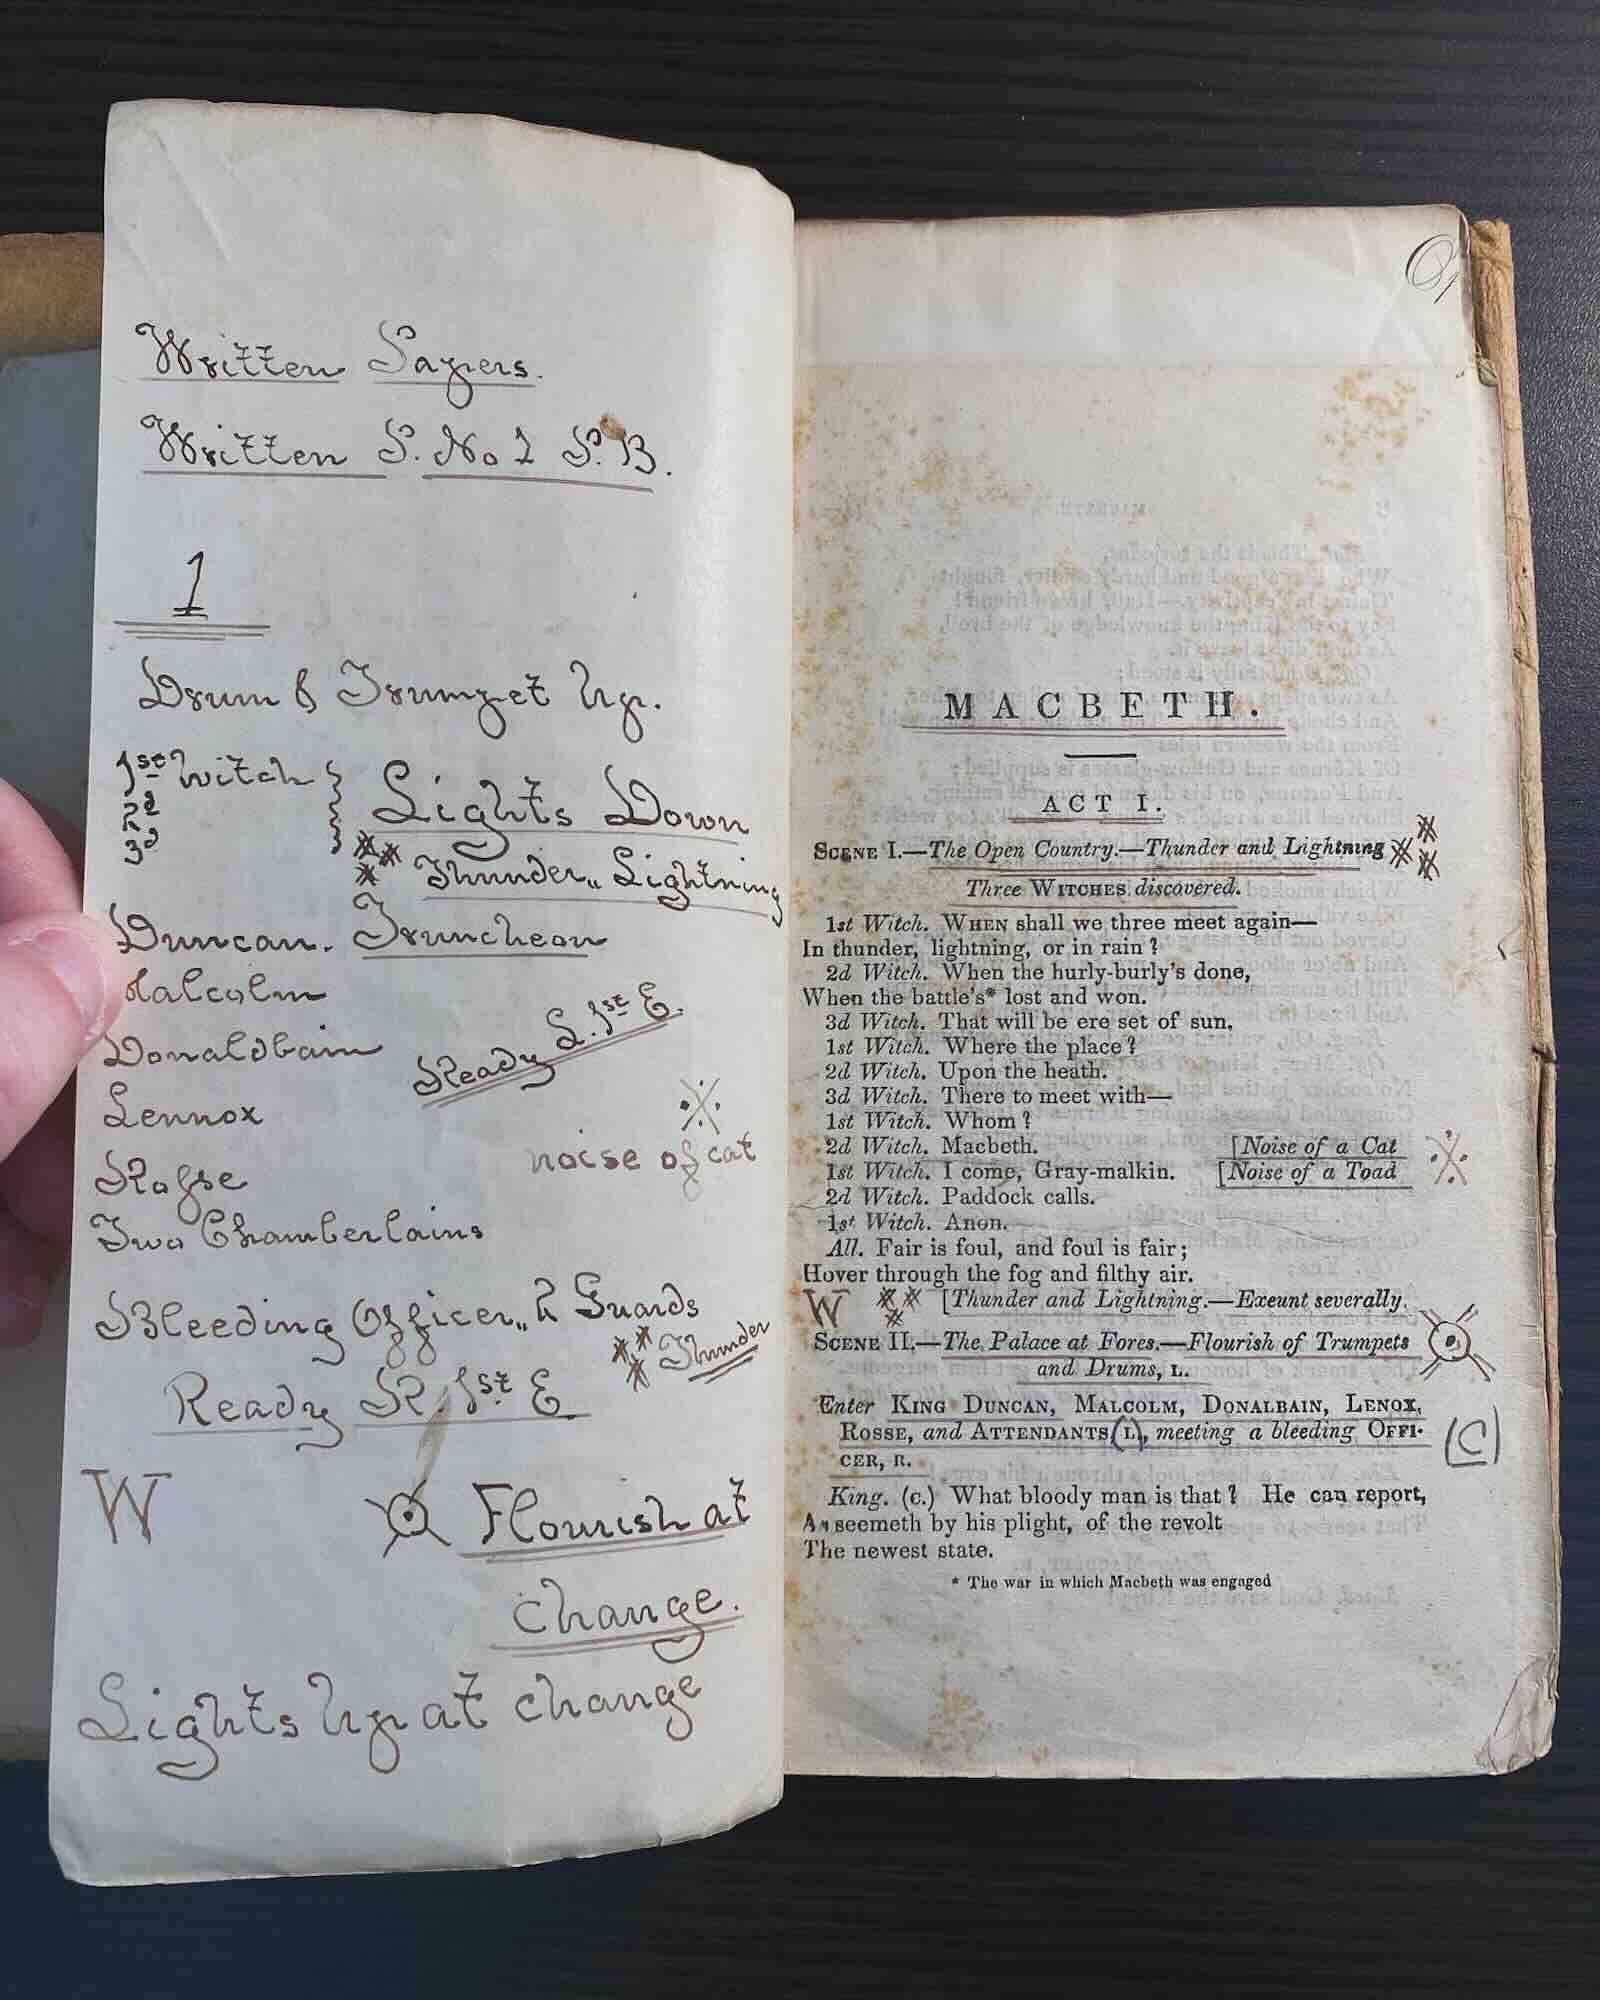 Written Papers.
Written P. No 1 P. B.
1
Drum & Trumpet Up.
1st Witch
2d
3d
Lights Down
Thunder „ Lightning
Duncan. Truncheon
Malcolm
Donaldbain
Ready L. 1st E.
Lennox
noise of cat
Rosse
Two Chamberlains
Bleeding Officer „ 2 Guards
Thunder
Ready R. 1st E.
W
Flourish at
change.
Lights Up at change
MACBETH.
ACT I.
SCENE I.—The Open Country.—Thunder and Lightning
Three WITCHES discovered.
1st Witch. WHEN shall we three meet again—
In thunder, lightning, or in rain?
2d Witch. When the hurly-burly's done,
When the battle's* lost and won.
3d Witch. That will be ere set of sun.
1st Witch. Where the place?
2d Witch. Upon the heath.
3d Witch. There to meet with—
1st Witch. Whom?
2d Witch. Macbeth. [Noise of a Cat
1st Witch. I come, Gray-malkin. [Noise of a Toad
2d Witch. Paddock calls.
1st Witch. Anon.
All. Fair is foul, and foul is fair;
Hover through the fog and filthy air.
W [Thunder and Lightning.—Exeunt severally.
SCENE II.—The Palace at Fores.—Flourish of Trumpets
and Drums, L.
Enter KING DUNCAN, MALCOLM, DONALBAIN, LENOX,
ROSSE, and ATTENDANTS (L), meeting a bleeding OFFI-
CER, R.
(C)
King. (C.) What bloody man is that? He can report,
As seemeth by his plight, of the revolt
The newest state.
* The war in which Macbeth was engaged